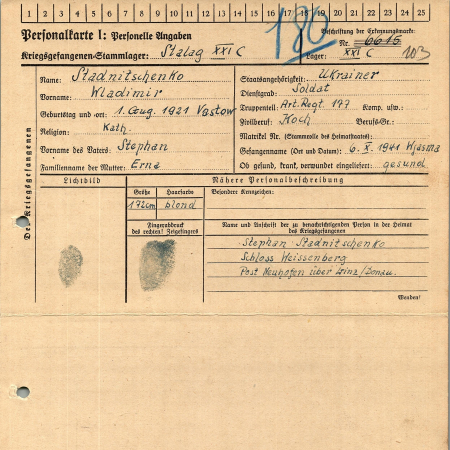 1 2 3 4 5 6 7 8 9 10 11 12 13 14 15 16 17 18 19 20 21 22 23 24 25
Personalkarte I: Personelle Angaben
180
Beschriftung der Erkennungsmarke
Nr. 6615
Kriegsgefangenen-Stammlager: Stalag XXI C
Lager: XXI C
203
Des Kriegsgefangenen
Name: Stadnitschenko
Vorname: Wladimir
Geburtstag und -ort: 1. Aug. 1921
Religion: Kath.
Vorname des Vaters: Stephan
Familienname der Mutter: Erna
Staatsangehörigkeit: Ukrainer
Dienstgrad: Soldat
Truppenteil: Art. Regt. 177 Komp. usw.:
Zivilberuf: Koch Berufs-Gr.:
Matrikel Nr. (Stammrolle des Heimatstaates):
Gefangennahme (Ort und Datum): 6. X. 1941 Wjasma
Ob gesund, krank, verwundet eingeliefert: gesund
Lichtbild
Nähere Personalbeschreibung
Größe
Haarfarbe
Besondere Kennzeichen:
172cm
blond
Fingerabdruck
des rechten Zeigefingers
Name und Anschrift der zu benachrichtigenden Person in der Heimat
des Kriegsgefangenen
Stephan Stadnitschenko
Schloss Weissenberg
Post Neuhofen über Linz/Donau.
Wenden!